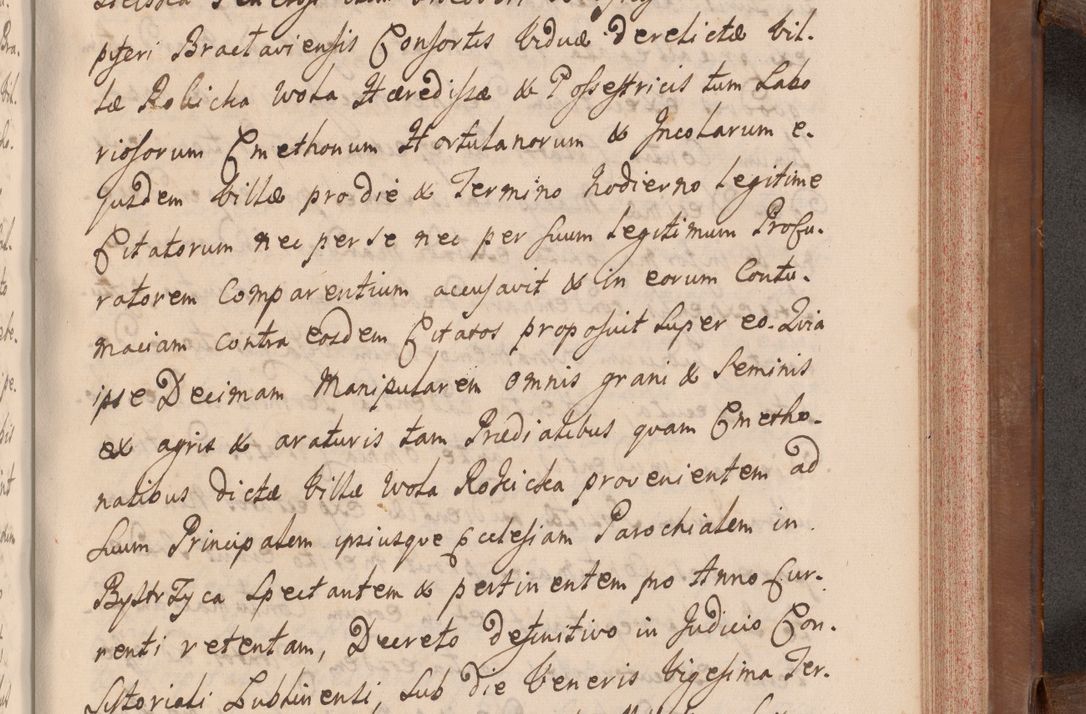 pyferi Bractaviensis Consortis Viduæ Derelictæ Vil-
læ Rokicka Wola Hæredissæ & Possestricis tum Labo
riosorum Cmethonum Hortulanorum & Incolarum e-
jusdem Villæ pro die & Termino hodierno legitime
Citatorum nec per se nec per suum legitimum Procu-
ratorem Comparentium accusavit & in eorum Contu-
maciam contra eosdem Citatos proposuit super eo. Quia
ipse Decimam Manipularem omnis grani & Seminis
ex agris & araturis tam Prædialibus quam Cmetho-
nalibus dictæ Villæ Wola Rokicka provenientem ad
suum Principalem ipsiusque Ecclesiam Parochialem in
Bystrzyca Spectantem & pertinentem pro Anno Cur-
renti retentam, Decreto definitivo in Judicio Con-
sistoriali Lublinensi, sub die Veneris Vigesima Ter-